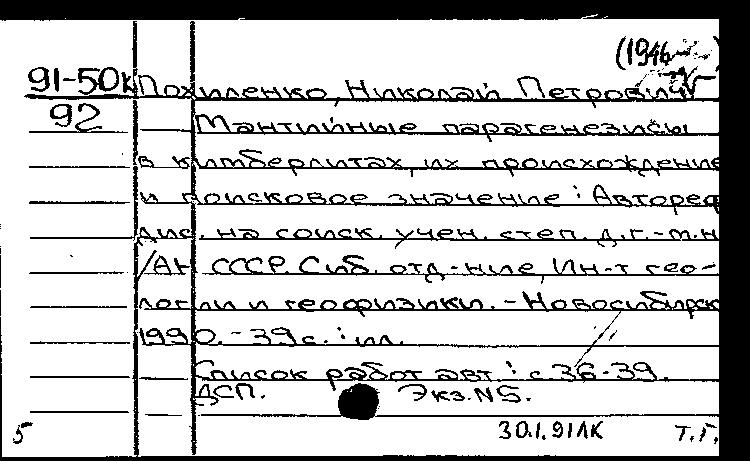 (1946-
91-50к Похиленко, Николай Петрович
92 Мантийные парагенезисы
в кимберлитах, их происхождение
и поисковое значение : Автореф
дис. на соиск. учен. степ. д.г.-м.н
/АН СССР. Сиб. отд-ние, Ин-т гео-
логии и геофизики. - Новосибирск
1990. - 39 с. : ил.
Список работ авт.: с. 36-39.
ДСП. Экз. N5.
5 30.1.91ЛК Т.Г.